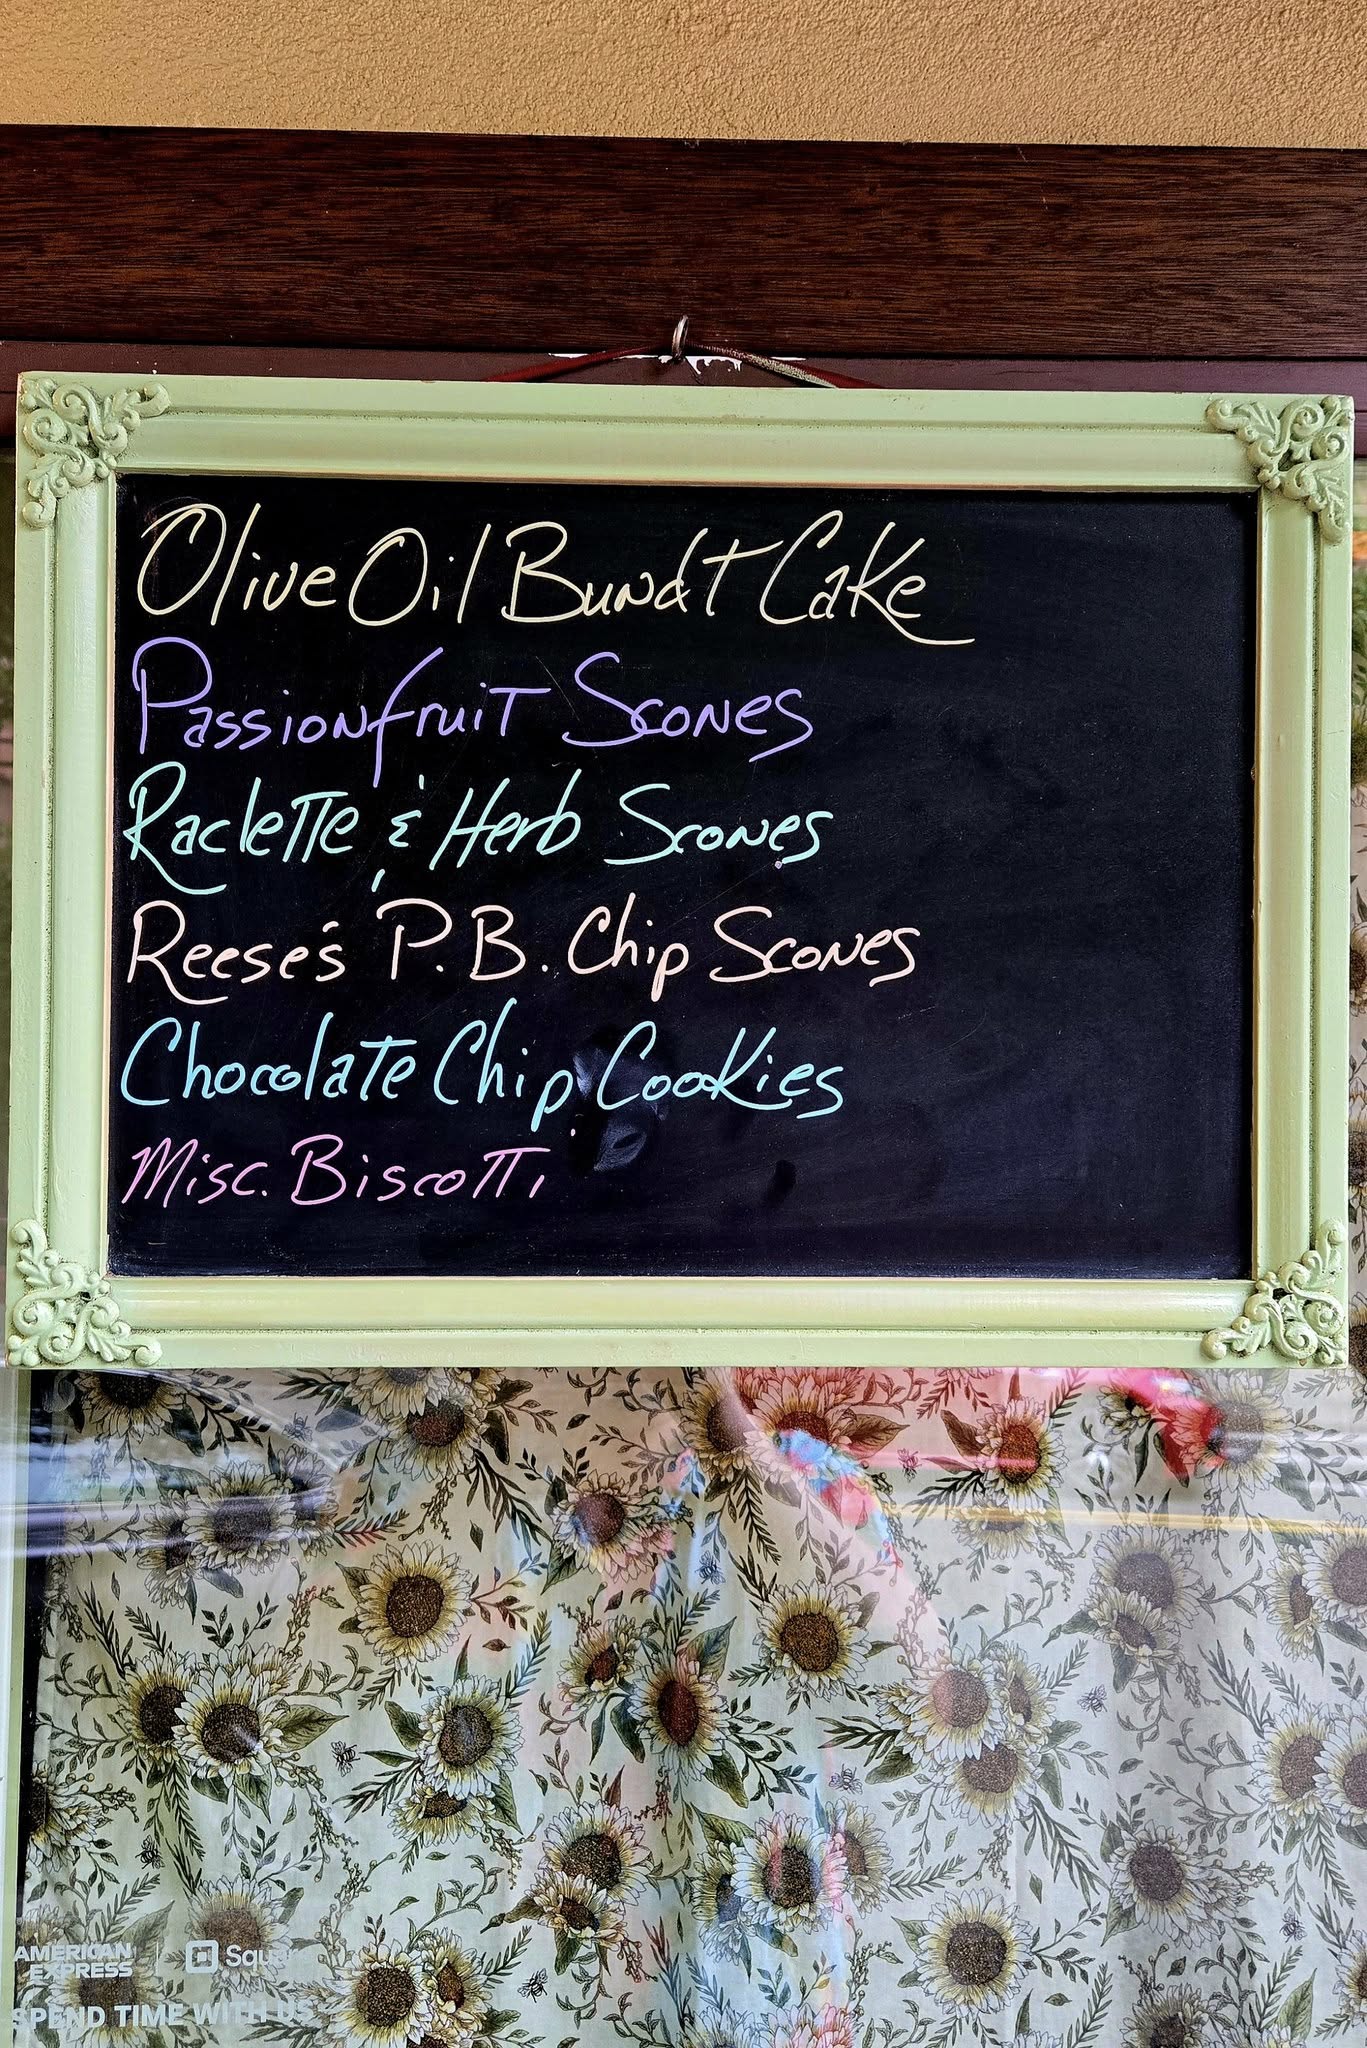 Olive Oil Bundt Cake
Passionfruit Scones
Raclette & Herb Scones
Reese's P.B. Chip Scones
Chocolate Chip Cookies
Misc. Biscotti
AMERICAN EXPRESS
Square
SPEND TIME WITH US